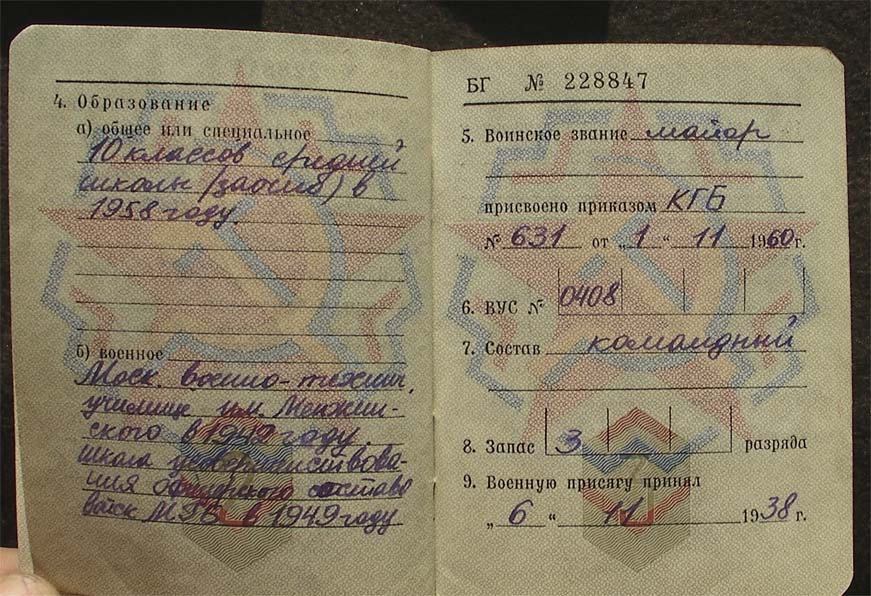 4. Образование
а) общее или специальное
10 классов средней
школы (заочно) в
1958 году
б) военное
Моск. военно-технич.
училище им. Менжин-
ского в 1949 году.
школа усовершенствова-
ния офицерского состава
войск МГБ в 1949 году
БГ № 228847
5. Воинское звание майор
присвоено приказом КГБ
№ 631 от „1“ 11 1960 г.
6. ВУС № 0408
7. Состав командный
8. Запас 3 разряда
9. Военную присягу принял
„6“ 11 1938 г.